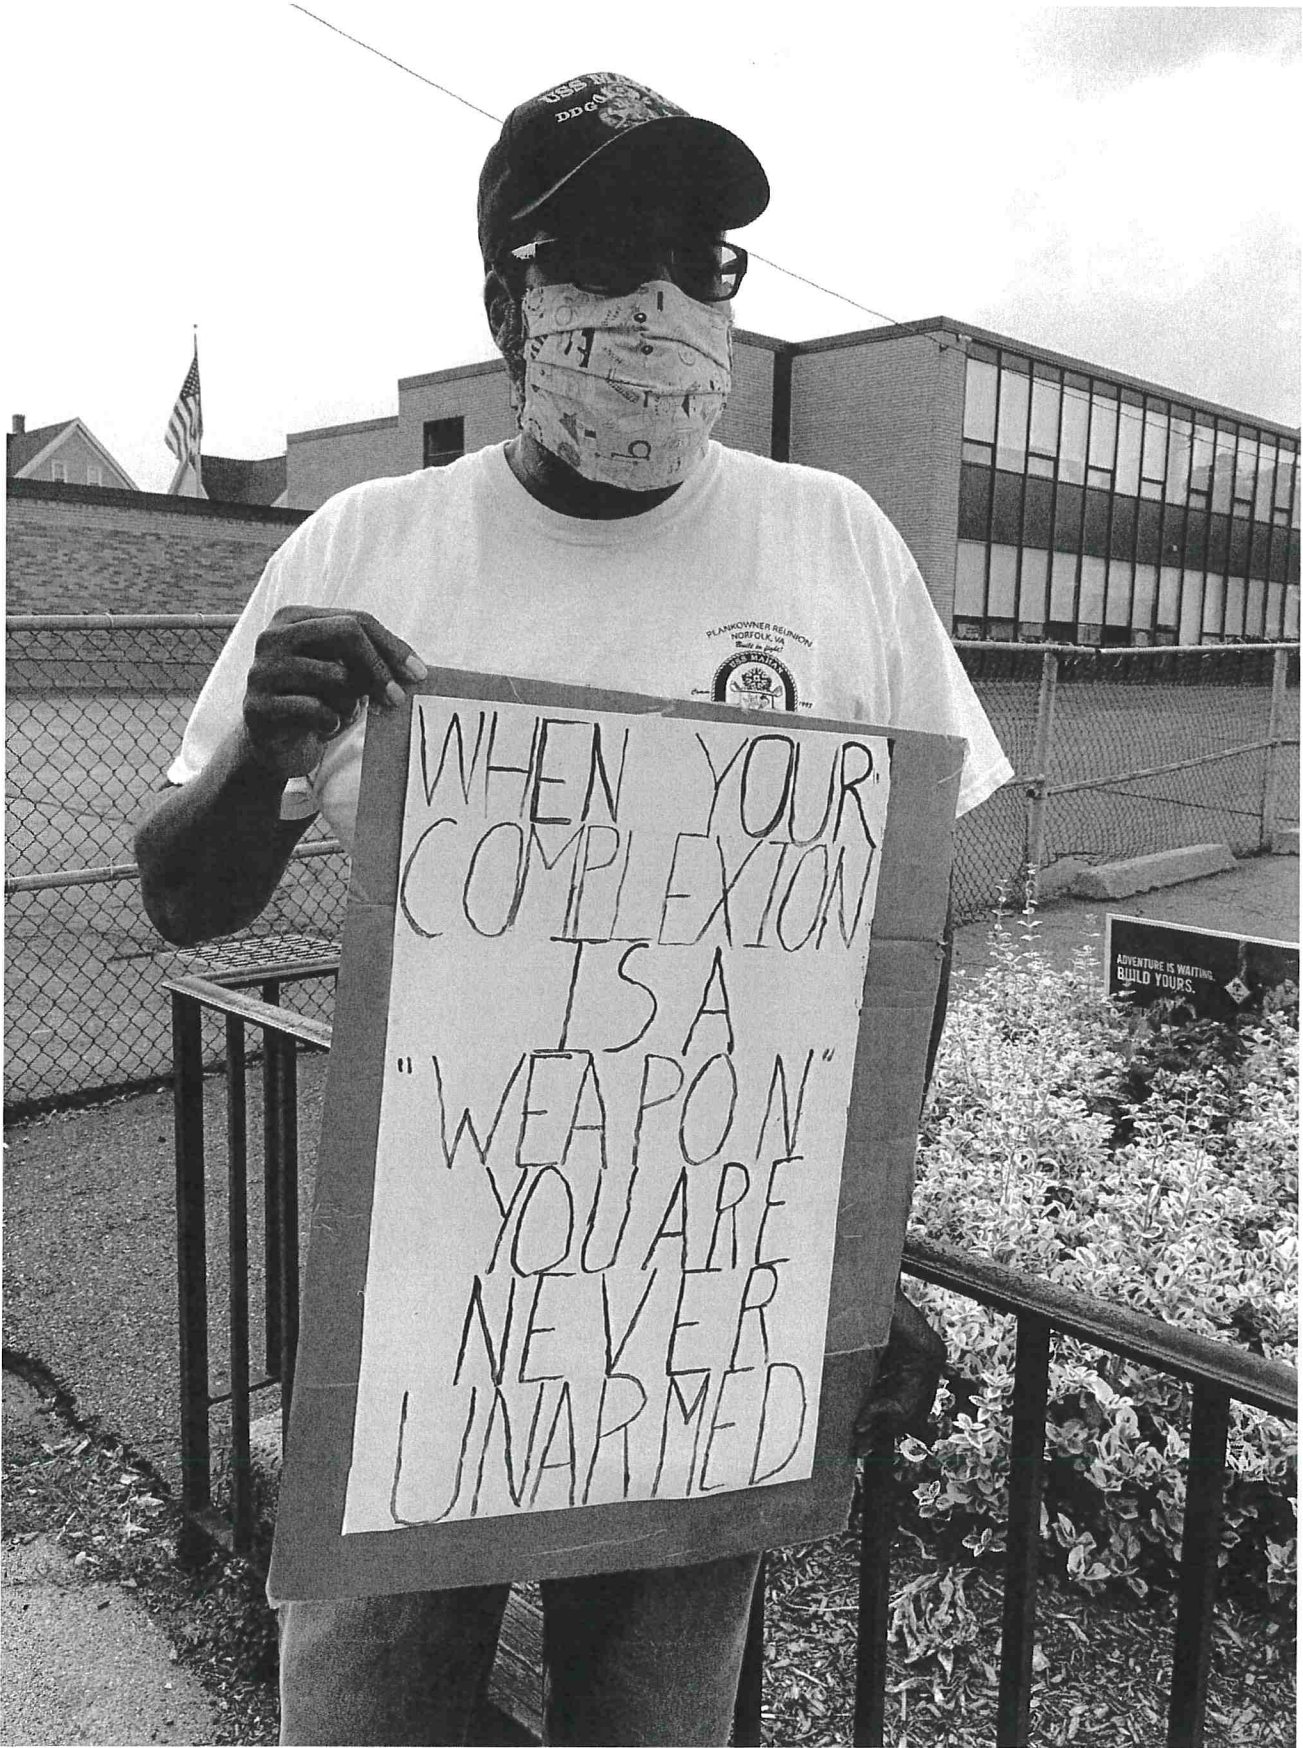 USS MA
DDG
PLANKOWNER REUNION
NORFOLK, VA
Built to fight!
USS MAHAN
Comm
1993
WHEN YOUR
COMPLEXION
IS A
"WEAPON"
YOU ARE
NEVER
UNARMED
ADVENTURE IS WAITING.
BUILD YOURS.